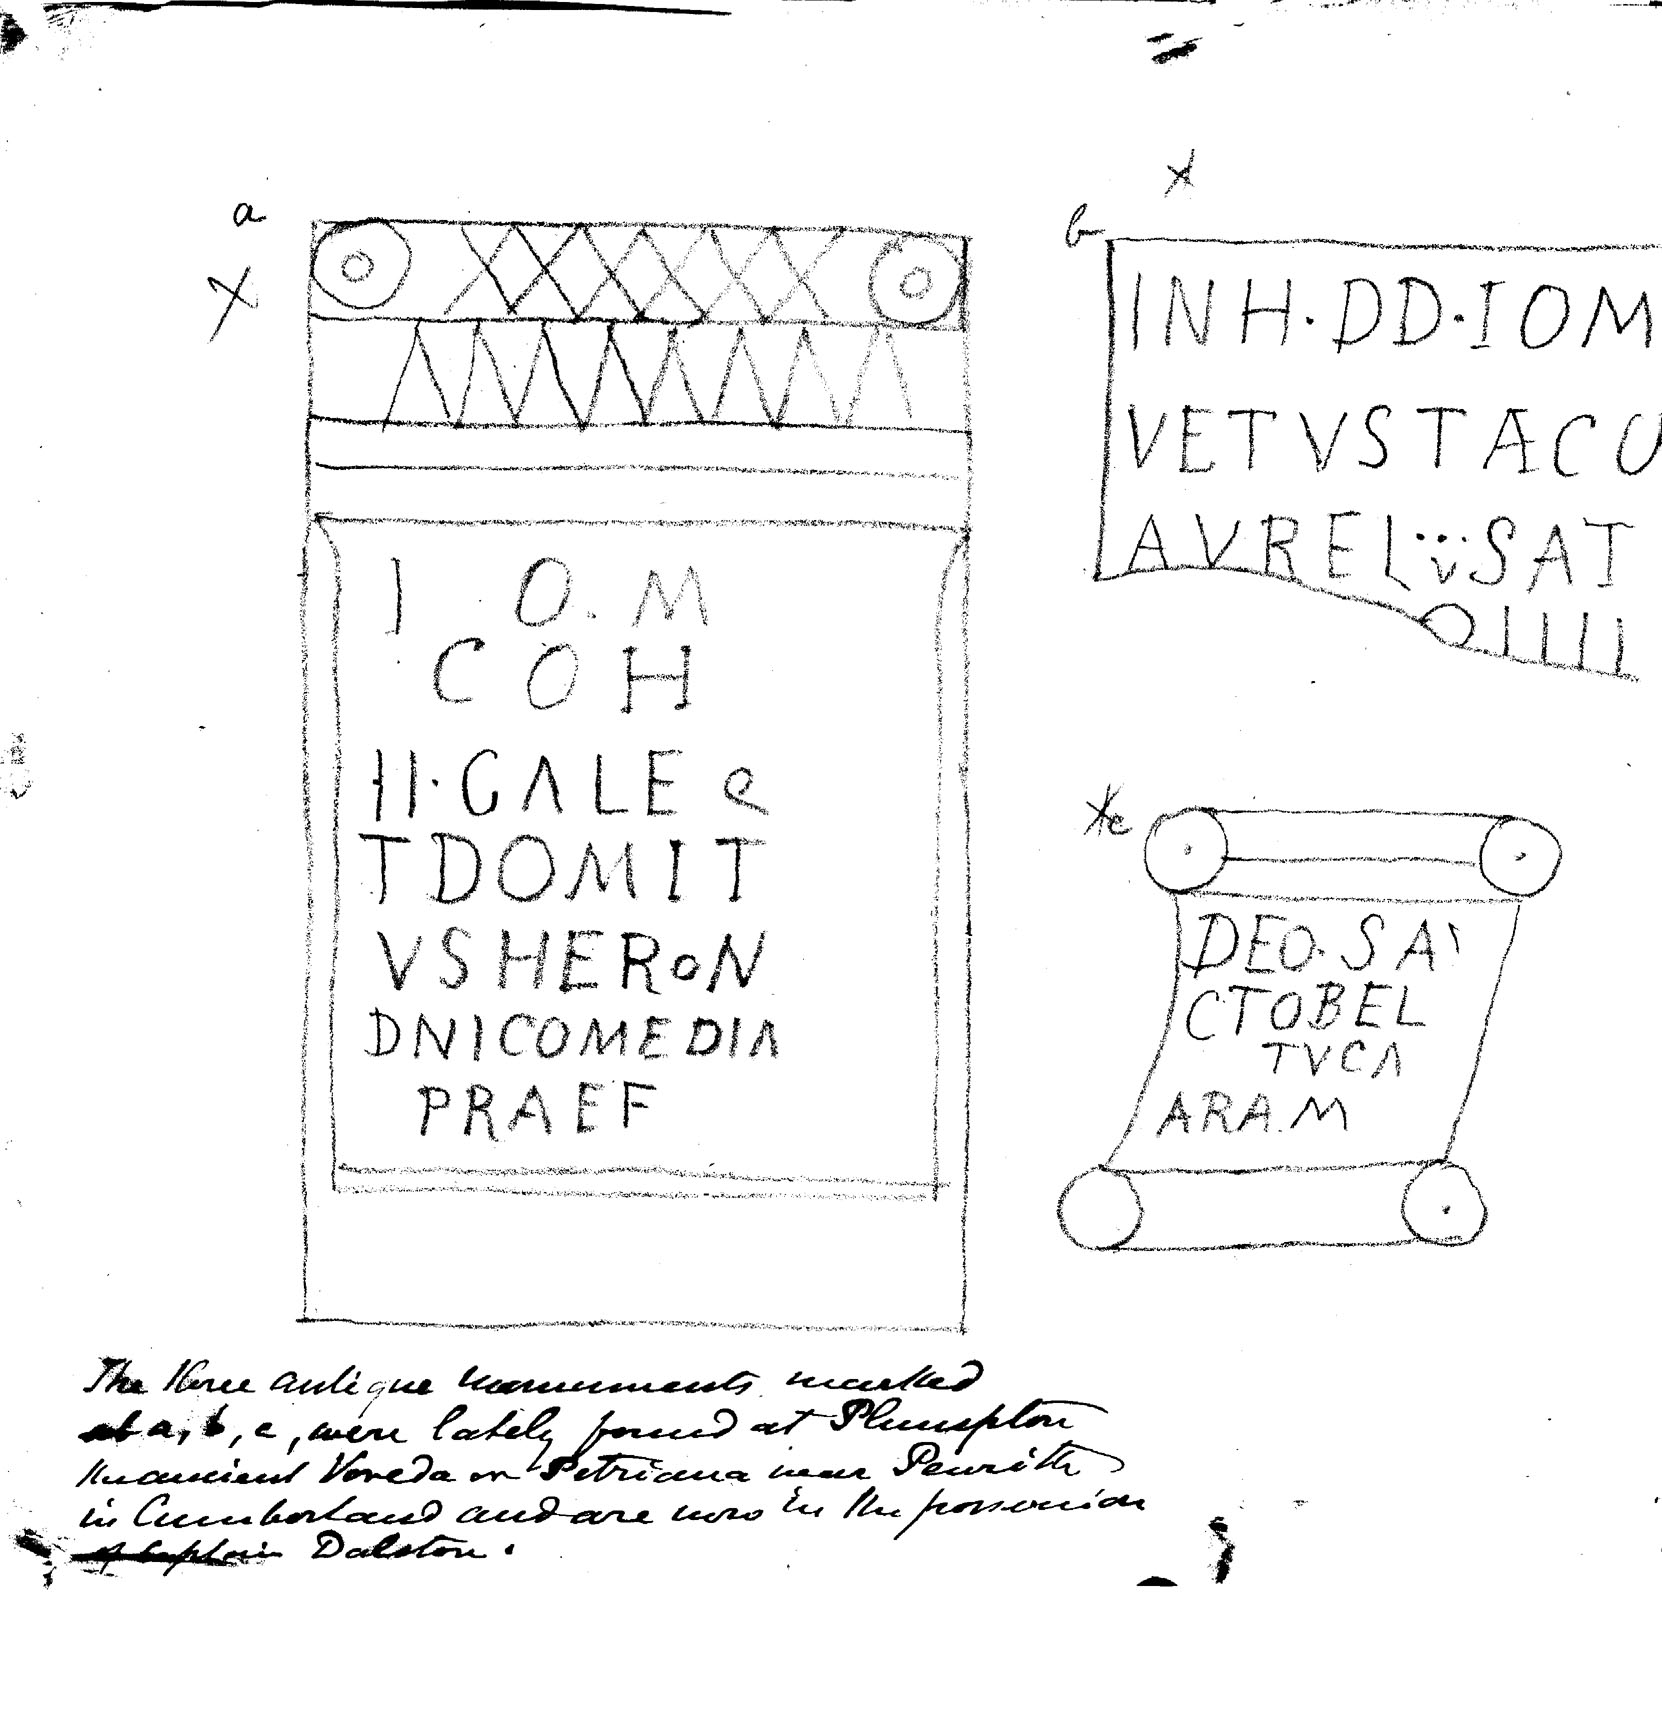 a
I O. M
COH
II·GALE Q
TDOMIT
VSHERoN
DNICOMEDIA
PRAEF
b
INH·DD·IOM
VETVSTÆCU
AVREL SAT
c
DEO·SA
CTOBEL
TVCA
ARA.M
The three antique monuments marked
a, b, c, were lately found at Plumpton
the ancient Voreda or Petriana near Penrith
in Cumberland and are now in the possession
of Captain Dalston.